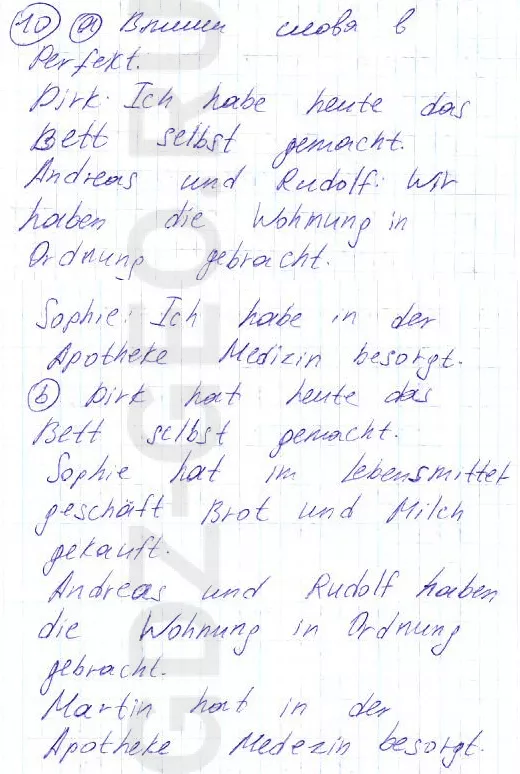 10 а Впиши слова в
Perfekt.
Dirk: Ich habe heute das
Bett selbst gemacht.
Andreas und Rudolf: Wir
haben die Wohnung in
Ordnung gebracht.
Sophie: Ich habe in der
Apotheke Medizin besorgt.
b Dirk hat heute das
Bett selbst gemacht.
Sophie hat im Lebensmittel
geschäft Brot und Milch
gekauft.
Andreas und Rudolf haben
die Wohnung in Ordnung
gebracht.
Martin hat in der
Apotheke Medezin besorgt.
GDZ-GEO.RU